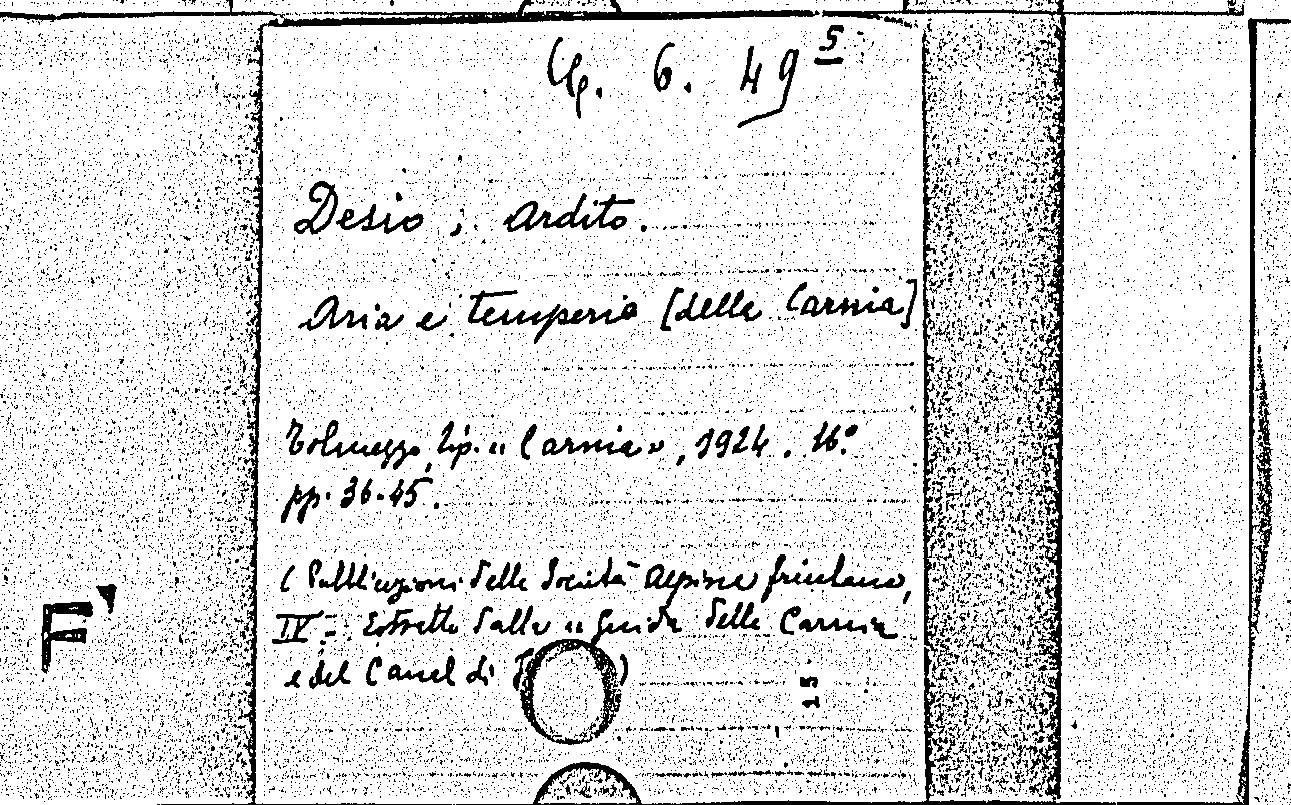 Op. 6. 49 5
Desio, Ardito.
Aria e temperie [della Carnia]
Tolmezzo, tip. « Carnia », 1924. 16°.
pp. 36-45.
(Pubblicazioni della Società Alpina friulana,
IV: Estratto dalla « Guida della Carnia
e del Canal di )
F'
15